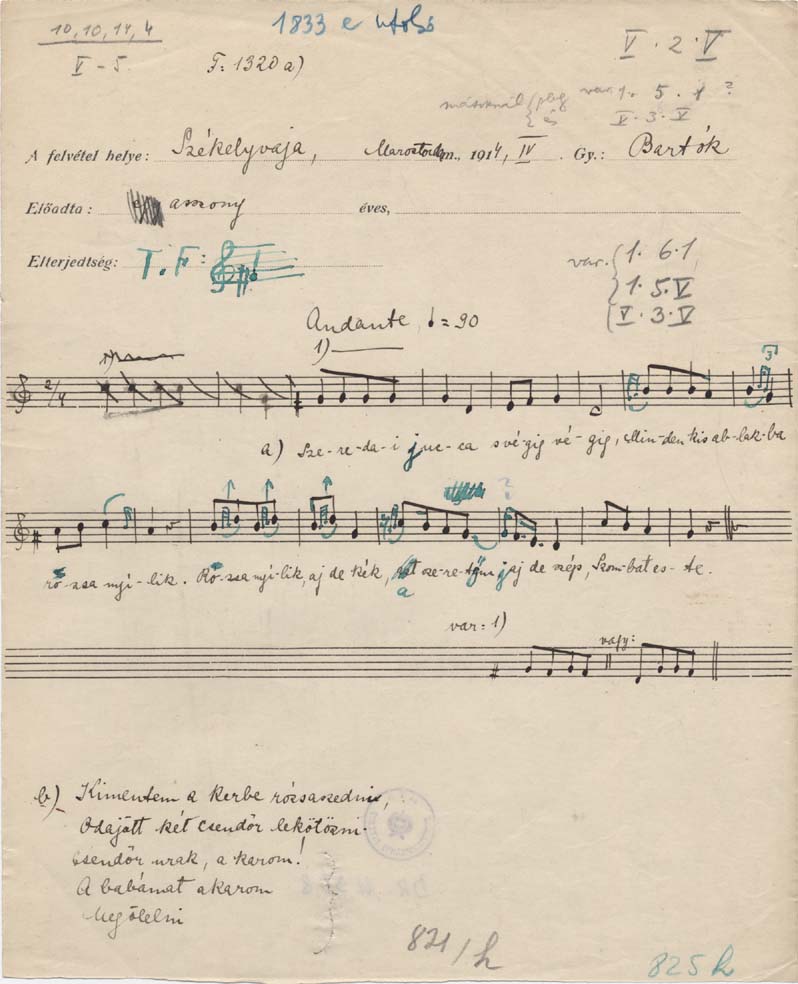 1833 e utolsó
10, 10, 14, 4
V - 5.
F: 1320 a)
V · 2 · V
var. 1. 5. 1 ?
V · 3 · V
A felvétel helye: Székelyvaja, m., 1914, IV. Gy.: Bartók
Előadta: asszony éves,
Elterjedtség: T. F:
var. 1. 6. 1
1. 5. V
V · 3 · V
Andante, = 90
1)
2/4
3
a) Sze-re-da-i juc-ca své-gig vé-gig, Min-den kis ab-lak-ba
ró-zsa nyí-lik. Ró-zsa nyí-lik, aj de kék, a sze-re-tőm jaj de szép, Szom-bat es-te.
var: 1)
vagy:
b) Kimentem a kerbe rózsaszedni,
Odajött két csendőr lekötözni
Csendőr urak, a karom!
A babámat akarom
Megölelni
821/h
825 h